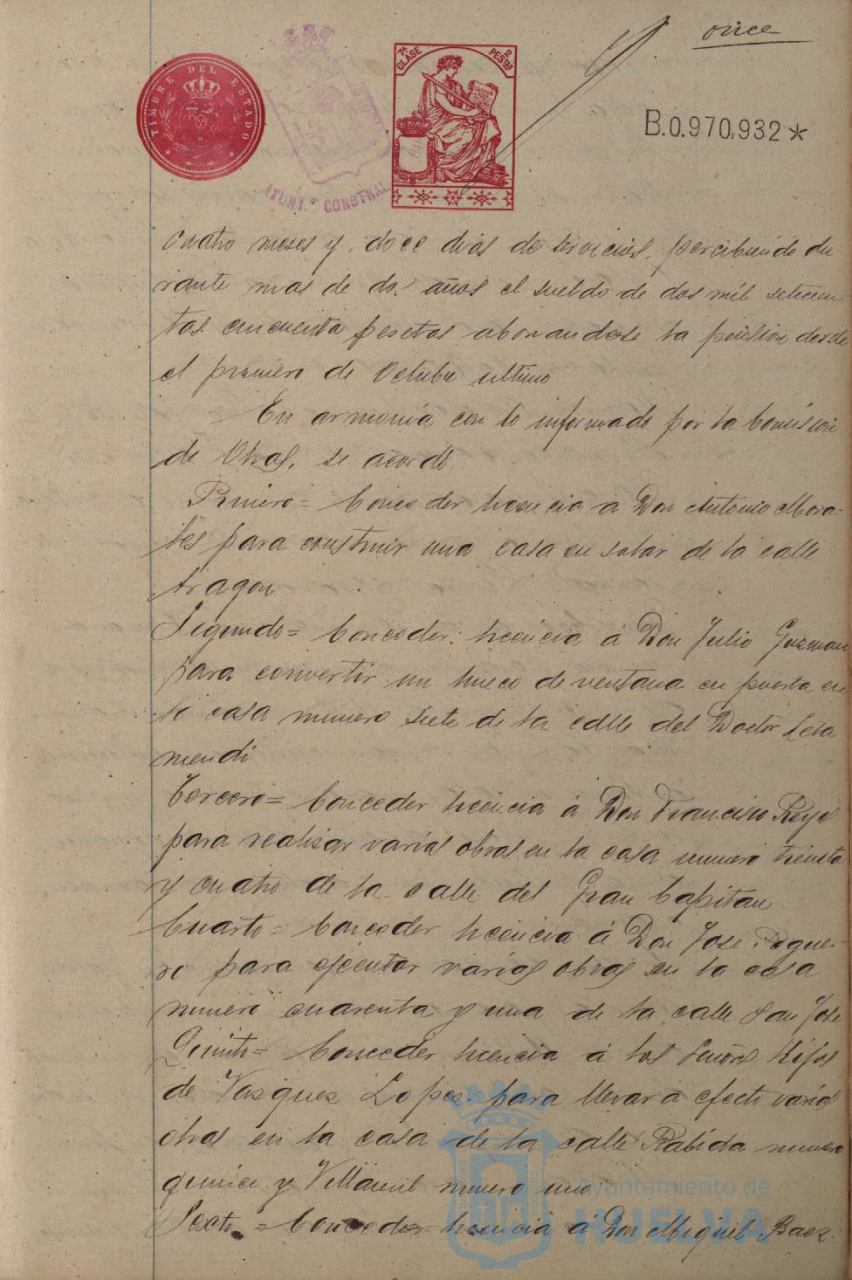 once
TIMBRE DEL ESTADO
7ª CLASE 2 PESTAS
B.0.970,932*
AYUNT.º CONSTNAL
cuatro meses y doce dias de servicios, percibiendo du
rante mas de dos años el sueldo de dos mil setecien
tas cincuenta pesetas abonandose la pension desde
el primero de Octubre ultimo
En armonia con lo informado por la Comision
de Obras, se acordó
Primero = Conceder licencia a Don Antonio Mora-
les para construir una casa en solar de la calle
Aragon
Segundo = Conceder licencia á Don Julio Guzman
para convertir un hueco de ventana en puerta en
la casa numero siete de la calle del Doctor Leta
mendi
Tercero = Conceder licencia á Don Francisco Reyes
para realizar varias obras en la casa numero treinta
y cuatro de la calle del Gran Capitan
Cuarto = Conceder licencia á Don Jose
ro para ejecutar varias obras en la casa
numero cuarenta y una de la calle San Jose
Quinto = Conceder licencia á los Señores Hijos
de Vasques Lopes para llevar a efecto varias
obras en la casa de la calle Rabida numero
quince y Villamil numero uno
Sexto = Conceder licencia á Don Miguel Baez
Ayuntamiento de
HUELVA